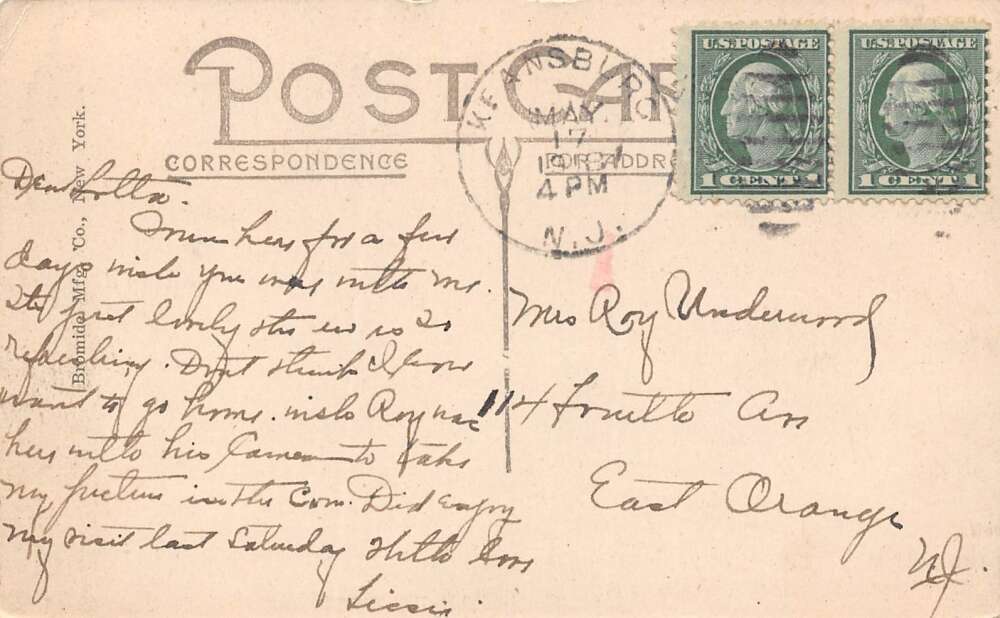 POST CARD
CORRESPONDENCE
FOR ADDRE
KEANSBURG
MAY
17
4 PM
N.J.
U.S. POSTAGE
1 CENT 1
U.S. POSTAGE
1 CENT 1
Bromide Mfg. Co., New York.
Dear Lotta.
here for a few
days wish you were with me.
Its just lovely the is so
refreshing. Dont think I have
want to go home. wish Roy was
here with his Camera to take
my picture in the Did enjoy
my visit last Saturday With love
Lizzie
Mrs Roy Underwood
114 Fourth Ave
East Orange
NJ.